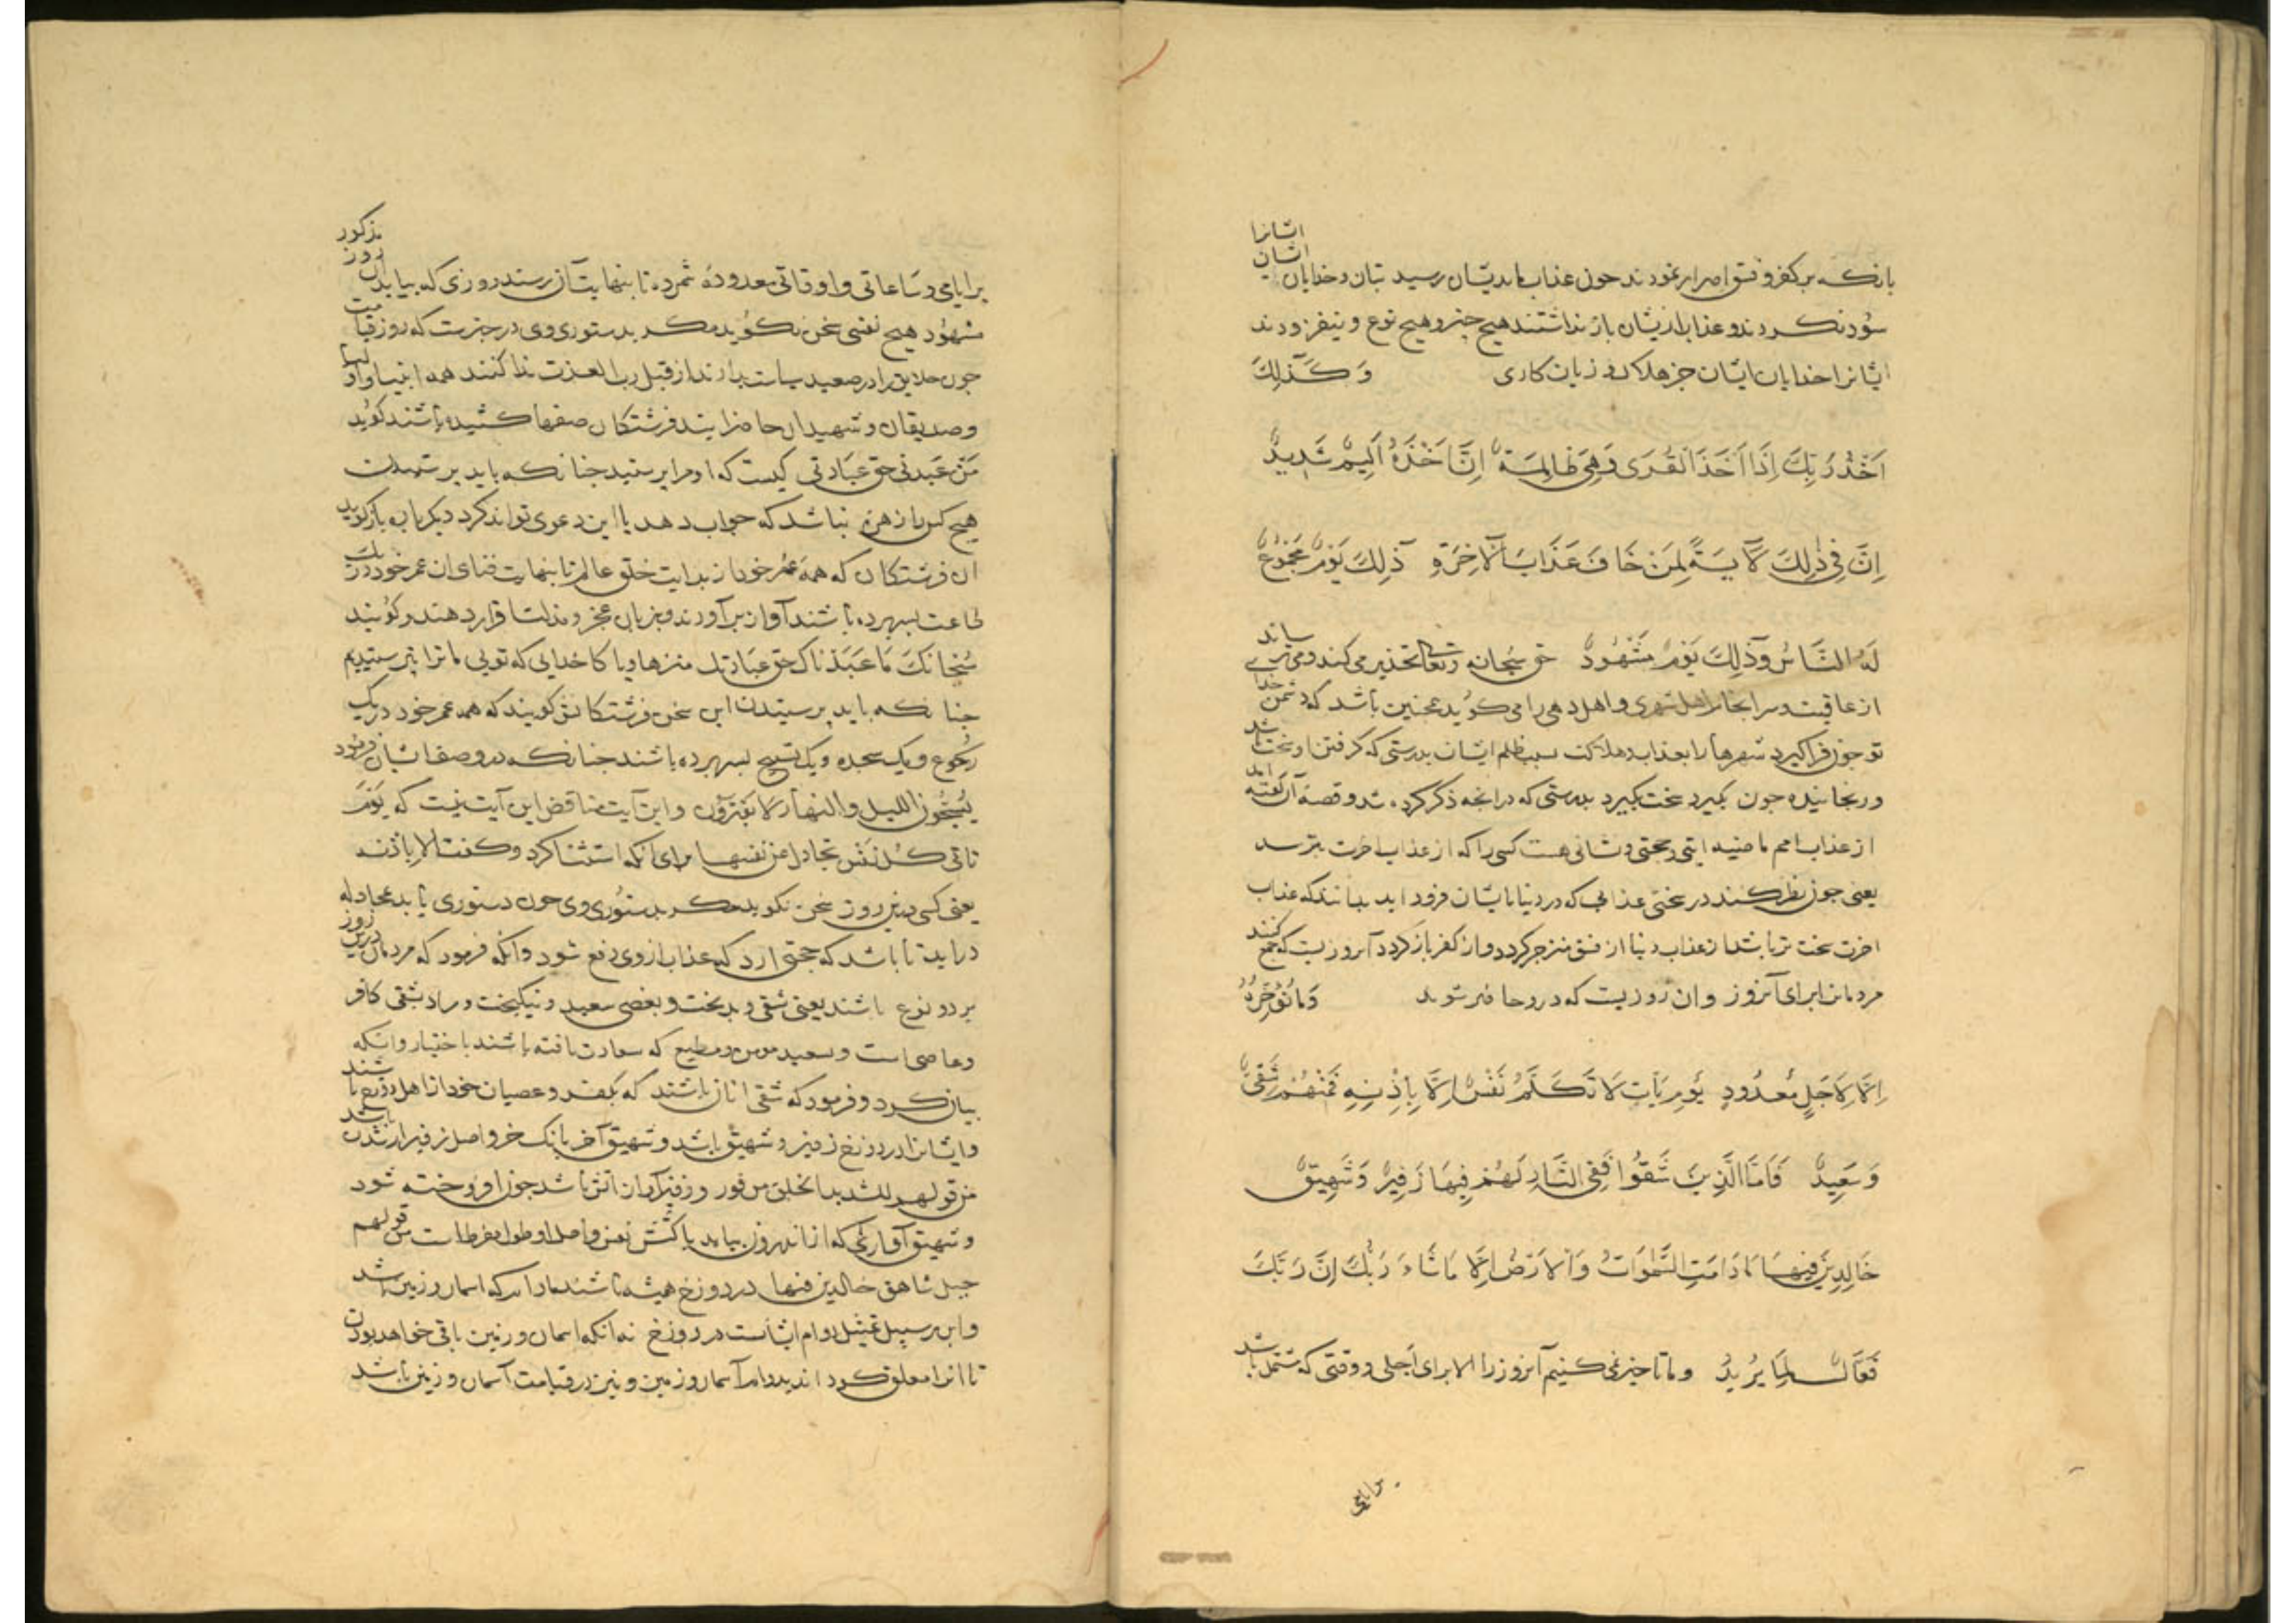 بانکه بر کفر و فسق اصرار نمودند جون عذاب ما بدیشان رسید بتان و خدایان ایشان ایشانرا
سود نکردند و عذاب از ایشان باز نداشتند هیچ جیز و هیچ نوع و نیفزودند
ایشانرا خدایان ایشان جز هلاک و زیان کاری وَكَذَلِكَ
اَخْذُ رَبِّكَ اِذَا اَخَذَ الْقُرَى وَهِىَ ظَالِمَةٌ اِنَّ اَخْذَهُ اَلِيمٌ شَدِيدٌ
اِنَّ فِى ذٰلِكَ لَآيَةً لِمَنْ خَافَ عَذَابَ الْآخِرَةِ ذَلِكَ يَوْمٌ مَجْمُوعٌ
لَهُ النَّاسُ وَذَلِكَ يَوْمٌ مَشْهُودٌ حق سبحانه وتعالی تحذیر می کند و می ترساند
از عاقبت و سرانجام اهل شهری و اهل دهی را می کوید همجنین باشد که دشمن خدا
تو جون فراکیرد شهرها را بعذاب و هلاکت بسبب ظلم ایشان بدرستی که کرفتن او سخت باشد
و رنجاننده جون بکیرد سخت بکیرد بدرستی که درانجه ذکر کرده شد و قصه آن کفته آمد
از عذاب امم ماضیه ایتی و حجتی و نشانی هست کسی را که از عذاب اخرت بترسد
یعنی جون نظر کند در سختی عذابی که در دنیا بایشان فرود اید بدانند که عذاب
اخرت سخت تر باشد از عذاب دنیا از فسق منزجر کردد و از کفر باز کردد آنروزیست که جمع کنند
مردمانرا برای آنروز و ان روزیست که درو حاضر شوند وَمَا نُؤَخِّرُهُ
اِلَّا لِاَجَلٍ مَعْدُودٍ يَوْمَ يَأْتِ لَا تَكَلَّمُ نَفْسٌ اِلَّا بِاِذْنِهِ فَمِنْهُمْ شَقِىٌّ
وَسَعِيدٌ فَاَمَّا الَّذِينَ شَقُوا فَفِى النَّارِ لَهُمْ فِيهَا زَفِيرٌ وَشَهِيقٌ
خَالِدِينَ فِيهَا مَا دَامَتِ السَّمَوَاتُ وَالْاَرْضُ اِلَّا مَا شَاءَ رَبُّكَ اِنَّ رَبَّكَ
فَعَّالٌ لِمَا يُرِيدُ و ما تاخیر نمی کنیم آنروز را الا برای اجلی و وقتی که مشتمل باشد
بر ایامی
بر ایامی و ساعاتی و اوقاتی معدوده شمرده تا بنهایت آن رسند روزی که بیاید آن روز مذکور
مشهود هیچ نفسی سخن نکوید مکر بدستوری وی در خبرست که روز قیامت
جون خلایق را در صعید سیاست بدارند از قبل رب العزت ندا کنند همه انبیا و اولیا
و صدیقان و شهیدان حاضر ایند فرشتکان صفها کشیده باشند کوید
مَنْ عَبَدَنى حق عِبَادتى کیست که او مرا پرستید جنانکه باید پرستیدن
هیچ کس را زهره نباشد که جواب دهد یا این دعوی تواند کرد دیکر باره باز کوید
ان فرشتکان که همه عمر خود از بدایت خلق عالم تا بنهایت فنای ان عمر خود در یک
طاعت بسر برده باشند آواز برآورند و بزبان عجز و مذلت اقرار دهند و کویند
سُبْحَانَكَ مَا عَبَدْنَاكَ حق عبادتك منزها و پاکا خدایی که تویی ما ترا نپرستیدیم
جنانکه باید پرستیدن این سخن فرشتکانی کویند که همه عمر خود در یک
رکوع و یک سجده و یک تسبیح بسر برده باشند جنانکه در وصف ایشان فرمود
يُسَبِّحُونَ الليل والنهار لا يفترون و این آیت مناقض این آیت نیست که يَوْمَ
تاتى كل نفس تجادل عن نفسها برای آنکه استثنا کرد و کفت الا باذنه
یعنی کسی درین روز سخن نکوید مکر بدستوری وی جون دستوری یابد بمجادله
دراید تا باشد که حجتی ارد که عذاب از وی دفع شود وانکه فرمود که مردمان درین روز
بر دو نوع باشند یعنی شقی و بدبخت و بعضی سعید و نیکبخت و مراد بشقی کافر
و عاصی است و سعید مومن و مطیع که سعادت یافته باشند باختیار وانکه
بیان کرد و فرمود که شقی انان باشند که بکفر و عصیان خود از اهل دوزخ باشند
و ایشانرا در دوزخ زفیر و شهیق باشد و شهیق آخر بانک خر و اصل زفیر ارشدت باشد
من قولهم للشديد الخلق مزفور و زفیر آواز آتش باشد جون افروخته شود
و شهیق آوازی که از اندرون بیاید باکشش نفس و اصل او طول مفرطست من قولهم
جبل شاهق خالدین فیها در دوزخ همیشه باشند مادام که اسمان و زمین باشد
و این بر سبیل تمثیل دوام ایشانست در دوزخ نه آنکه اسمان و زمین باقی خواهد بودن
تا انرا معلق کرداند بدوام آسمان و زمین و نیز در قیامت آسمان و زمین باشد